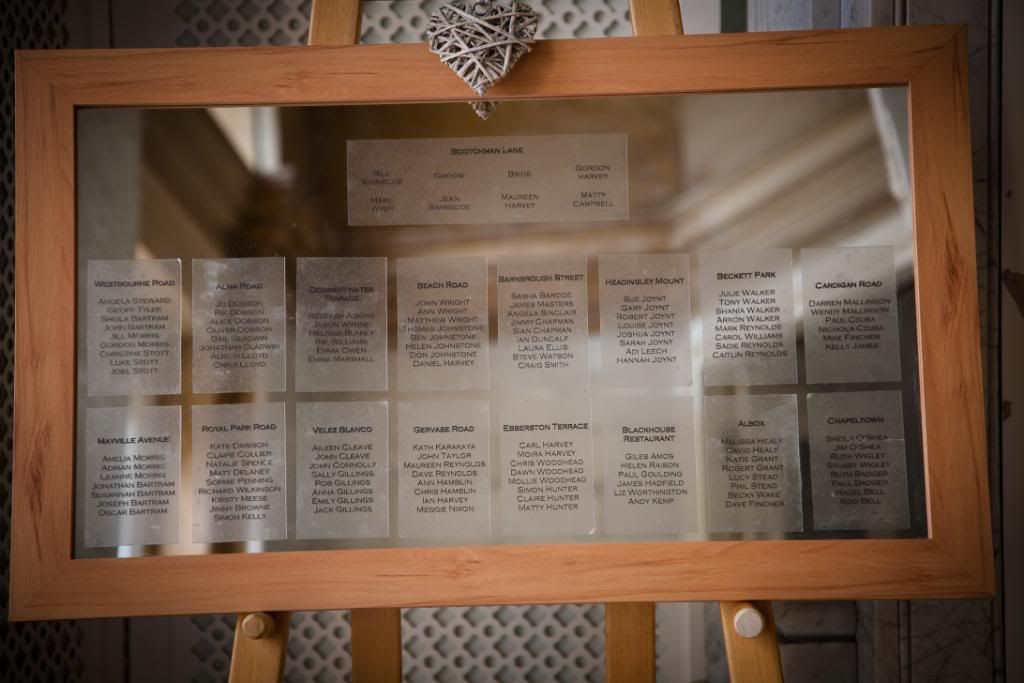 SCOTCHMAN LANE
BILL SWINSCOE
GROOM
BRIDE
GORDON HARVEY
MARC WYER
JEAN SWINSCOE
MAUREEN HARVEY
MATTY CAMPBELL
WESTBOURNE ROAD
ANGELA STEWARD
GEOFF TYLER
SHEILA BARTRAM
JOHN BARTRAM
JILL MORRIS
GORDON MORRIS
CHRISTINE STOTT
LUKE STOTT
JOEL STOTT
ALMA ROAD
JO DOBSON
RIK DOBSON
ALICE DOBSON
OLIVER DOBSON
GAIL GLADWIN
JONATHAN GLADWIN
ALISON LLOYD
CHRIS LLOYD
DERWENTWATER TERRACE
DEBORAH ASKINS
JASON WINNE
MELISSA BLAKEY
RIK WILLIAMS
EMMA OWEN
EMMA MARSHALL
BEACH ROAD
JOHN WRIGHT
ANN WRIGHT
MATTHEW WRIGHT
THOMAS JOHNSTONE
BEN JOHNSTONE
HELEN JOHNSTONE
DON JOHNSTONE
DANIEL HARVEY
BARNBROUGH STREET
SASHA BARCOE
JAMES MASTERS
ANGELA SINCLAIR
JIMMY CHAPMAN
SIAN CHAPMAN
IAN DUNCALF
LAURA ELLIS
STEVE WATSON
CRAIG SMITH
HEADINGLEY MOUNT
SUE JOYNT
GARY JOYNT
ROBERT JOYNT
LOUISE JOYNT
JOSHUA JOYNT
SARAH JOYNT
ADI LEECH
HANNAH JOYNT
BECKETT PARK
JULIE WALKER
TONY WALKER
SHANIA WALKER
ARRON WALKER
MARK REYNOLDS
CAROL WILLIAMS
SADIE REYNOLDS
CAITLIN REYNOLDS
CARDIGAN ROAD
DARREN MALLINSON
WENDY MALLINSON
PAUL CZUBA
NICHOLA CZUBA
MIKE FINCHER
KELLY JAMES
MAYVILLE AVENUE
AMELIA MORRIS
ADRIAN MORRIS
LEANNE MORRIS
JONATHAN BARTRAM
SUSANNAH BARTRAM
JOSEPH BARTRAM
OSCAR BARTRAM
ROYAL PARK ROAD
KATE DAWSON
CLAIRE COLLIER
NATALIE SPENCE
MATT DELANEY
SOPHIE PENNING
RICHARD WILKINSON
KIRSTY MEESE
JIMMY BROWNE
SIMON KELLY
VELEZ BLANCO
AILEEN CLEAVE
JOHN CLEAVE
JOHN CONNOLLY
SALLY GILLINGS
ROB GILLINGS
ANNA GILLINGS
EMILY GILLINGS
JACK GILLINGS
GERVASE ROAD
KATH KARAKAYA
JOHN TAYLOR
MAUREEN REYNOLDS
DAVE REYNOLDS
ANN HAMBLIN
CHRIS HAMBLIN
IAN HARVEY
MEGGIE NIXON
EBBERSTON TERRACE
CARL HARVEY
MOIRA HARVEY
CHRIS WOODHEAD
DAWN WOODHEAD
MOLLIE WOODHEAD
SIMON HUNTER
CLAIRE HUNTER
MATTY HUNTER
BLACKHOUSE RESTAURANT
GILES AMOS
HELEN RAISON
PAUL GOULDING
JAMES HADFIELD
LIZ WORTHINGTON
ANDY KEMP
ALBOX
MELISSA HEALY
DAVID HEALY
KATIE GRANT
ROBERT GRANT
LUCY STEAD
PHIL STEAD
BECKY WAKE
DAVE FINCHER
CHAPELTOWN
SHEILA O'SHEA
JIM O'SHEA
RUTH WIGLEY
STUART WIGLEY
RUTH BADGER
PAUL BADGER
HAZEL BELL
ROD BELL